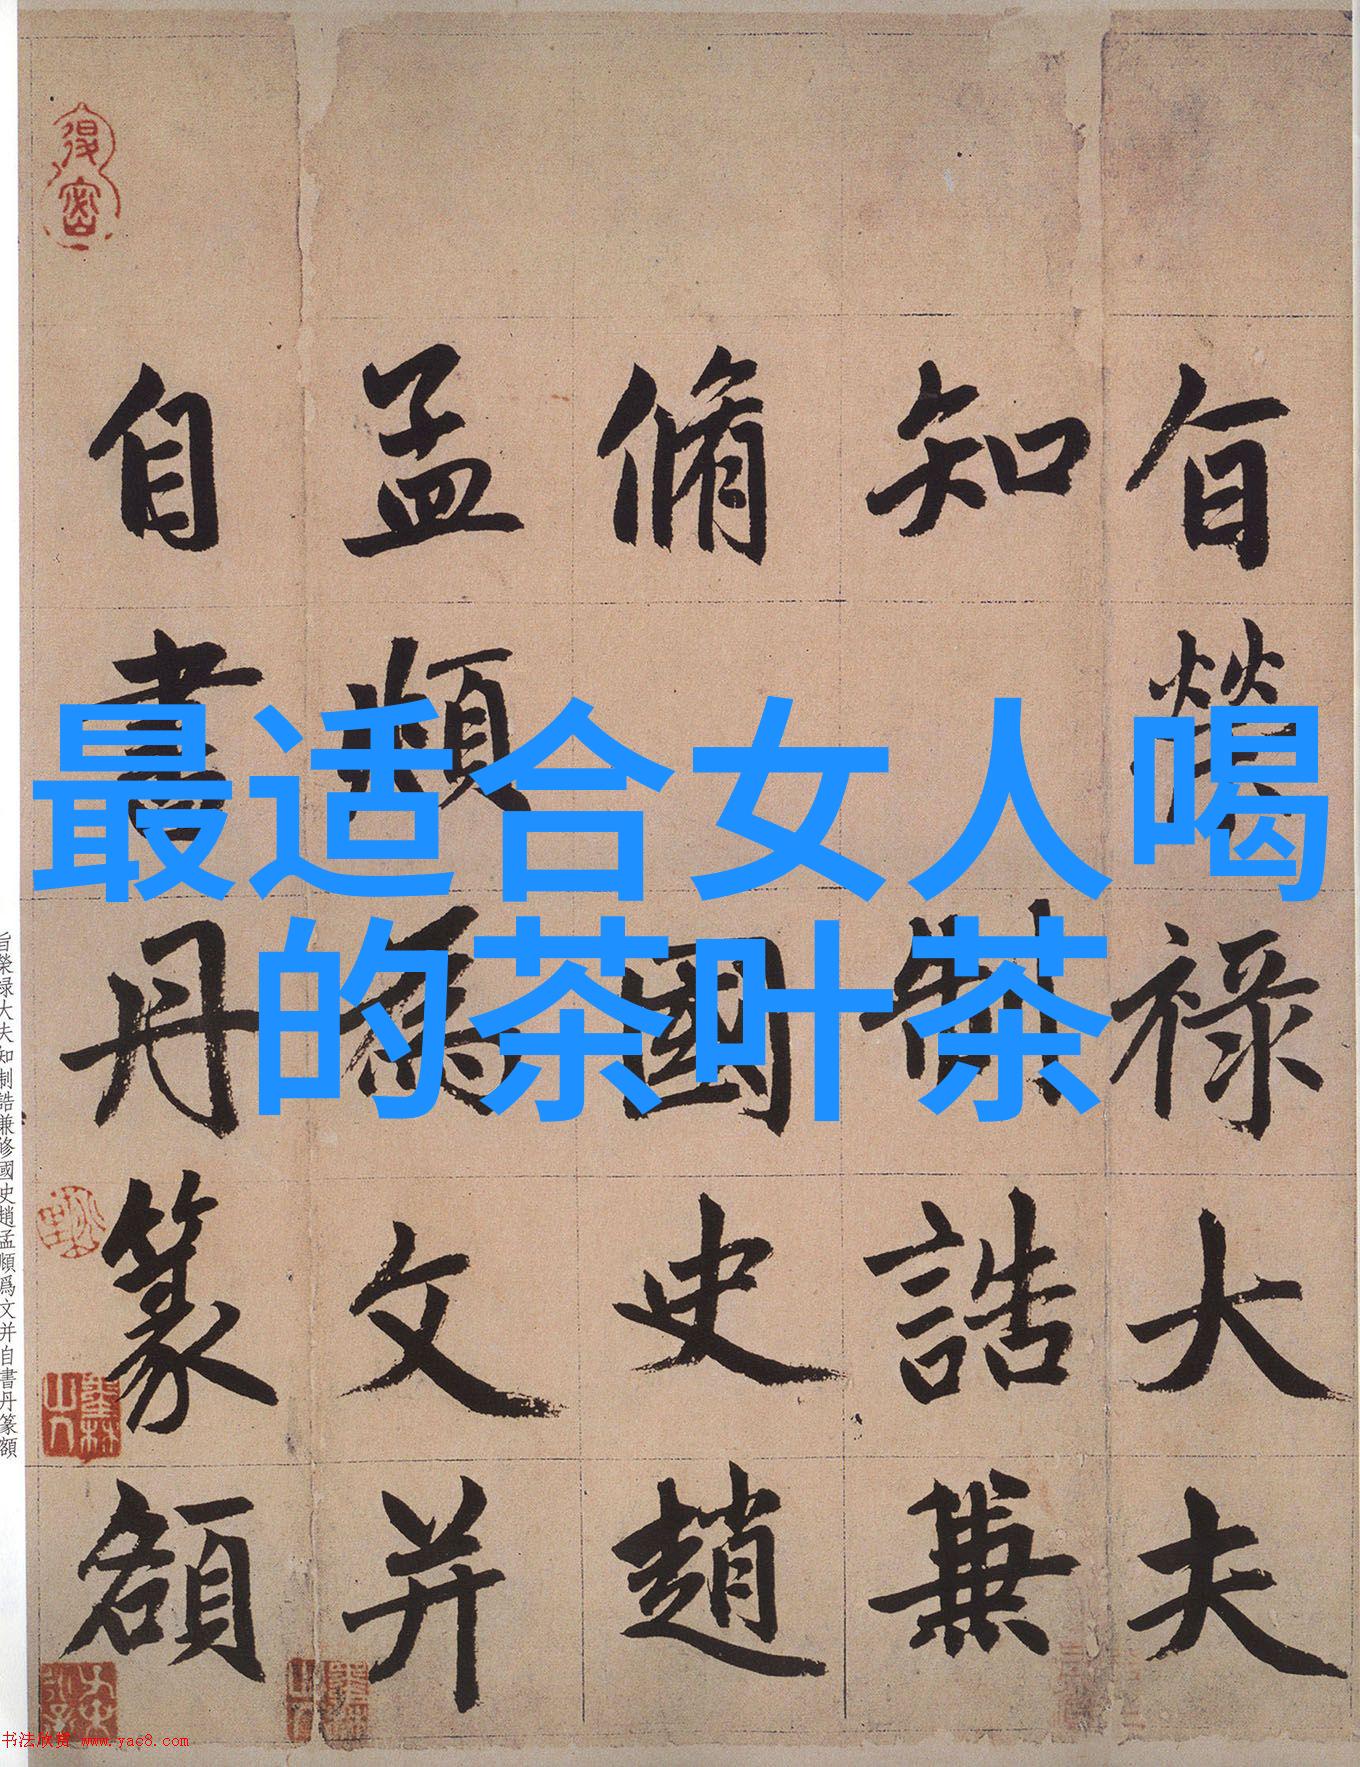 最适合女人喝
的茶叶茶
旨榮祿大夫
知制誥兼
脩國史趙
孟頫爲文并
自書丹篆額
旨榮禄大夫知制誥兼修國史趙孟頫爲文并自書丹篆額
书法欣赏 www.yac8.com